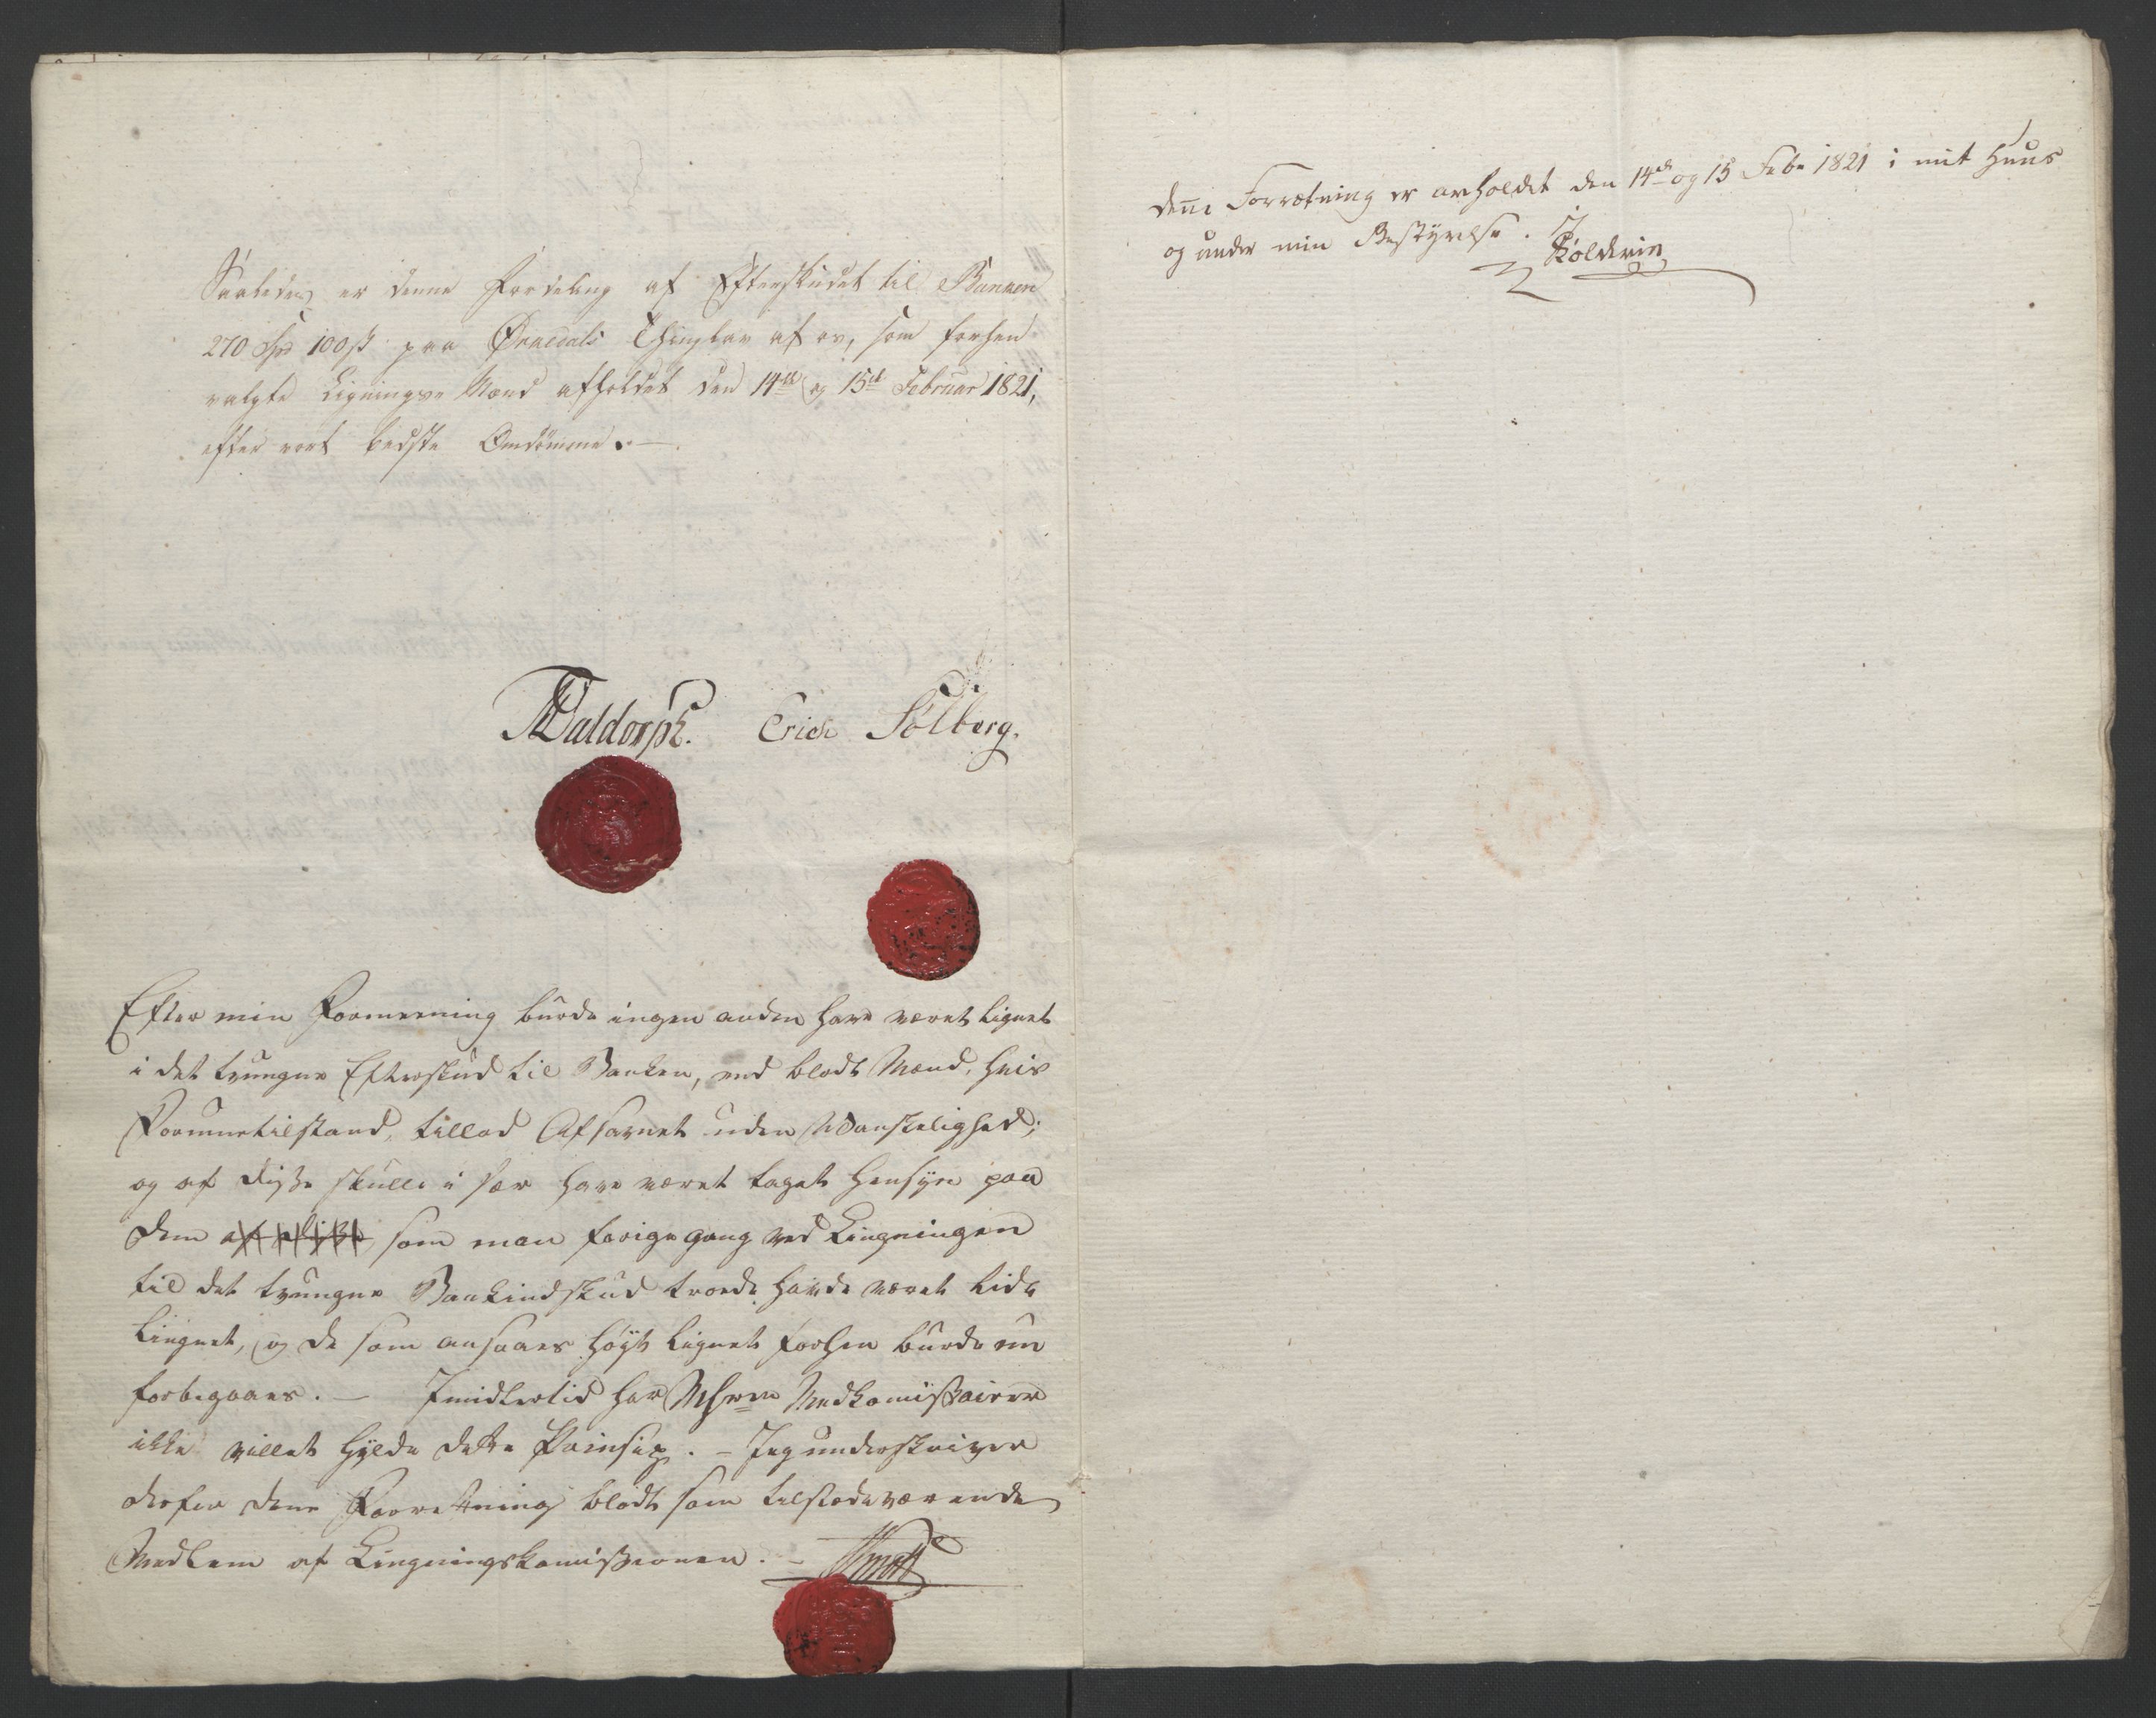 Saaledes er denne Fordeling af Efterskudet til Banken
270 Spd 100 ß paa Ørkedals Thinglav af os, som forhen
valgte Ligningsmænd afholdet den 14de og 15de Februar 1821,
efter vort bedste Omdømme. —
Waldorph. Erich Solberg.
Efter min Formeening burde ingen anden have været lignet
i det tvungne Efterskud til Banken, end blodt Mænd, hvis
Formuetilstand, tillod Afsavnet uden Vanskelighed;
og af disse skulle i sær have været taget Hensyn paa
dem som man forige gang ved Lingningen
til det tvungne Bankindskud troede havde været lidt
lingnet, og de som ansaaes høyt lignet forhen burde nu
forbigaaes. — Imidlertid har Medkomissairer
ikke villet hylde dette Prinsip. – Jeg underskriver
derfor dene Forretning blodt som tilstedeværende
Medlem af Lingningskomissionen. –
denne Forrætning er avholdet den 14de og 15 Febr 1821 i mit Huus
og under min Bestyrelse.